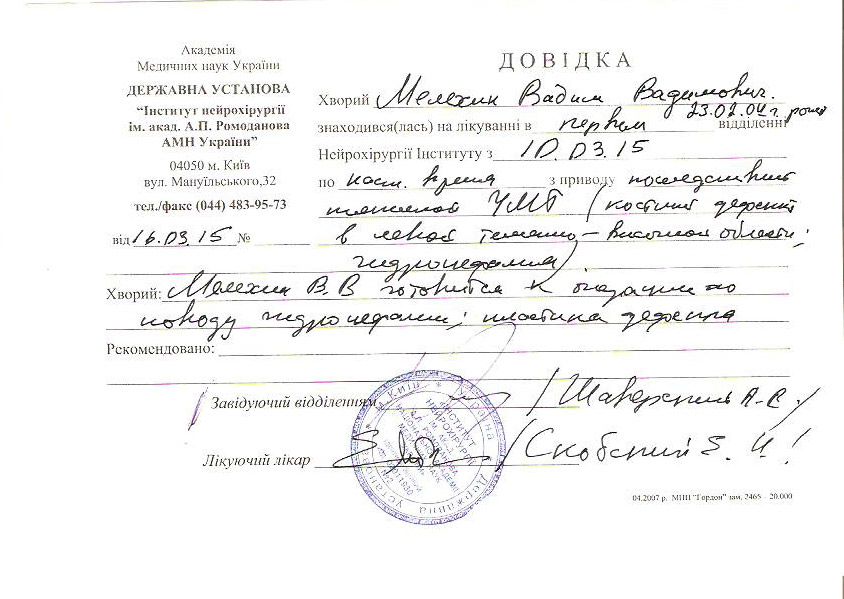 Академія
Медичних наук України
ДЕРЖАВНА УСТАНОВА
“Інститут нейрохірургії
ім. акад. А.П. Ромоданова
АМН України”
04050 м. Київ
вул. Мануїльського,32
тел./факс (044) 483-95-73
від 16.03.15 №
ДОВІДКА
Хворий Мелехин Вадим Вадимович.
знаходився(лась) на лікуванні в первом відділенні
Нейрохірургії Інституту з 10.03.15
по наст. время з приводу последствий
тяжелой ЧМТ (костный дефект
в левой темено-височной области;
гидроцефалия)
Хворий: Мелехин В.В готовится к операции по
поводу гидроцефалии; пластика дефекта
Рекомендовано:
Завідуючий відділенням
Лікуючий лікар
04.2007 р. МПП “Гордон” зам. 2465 - 20.000